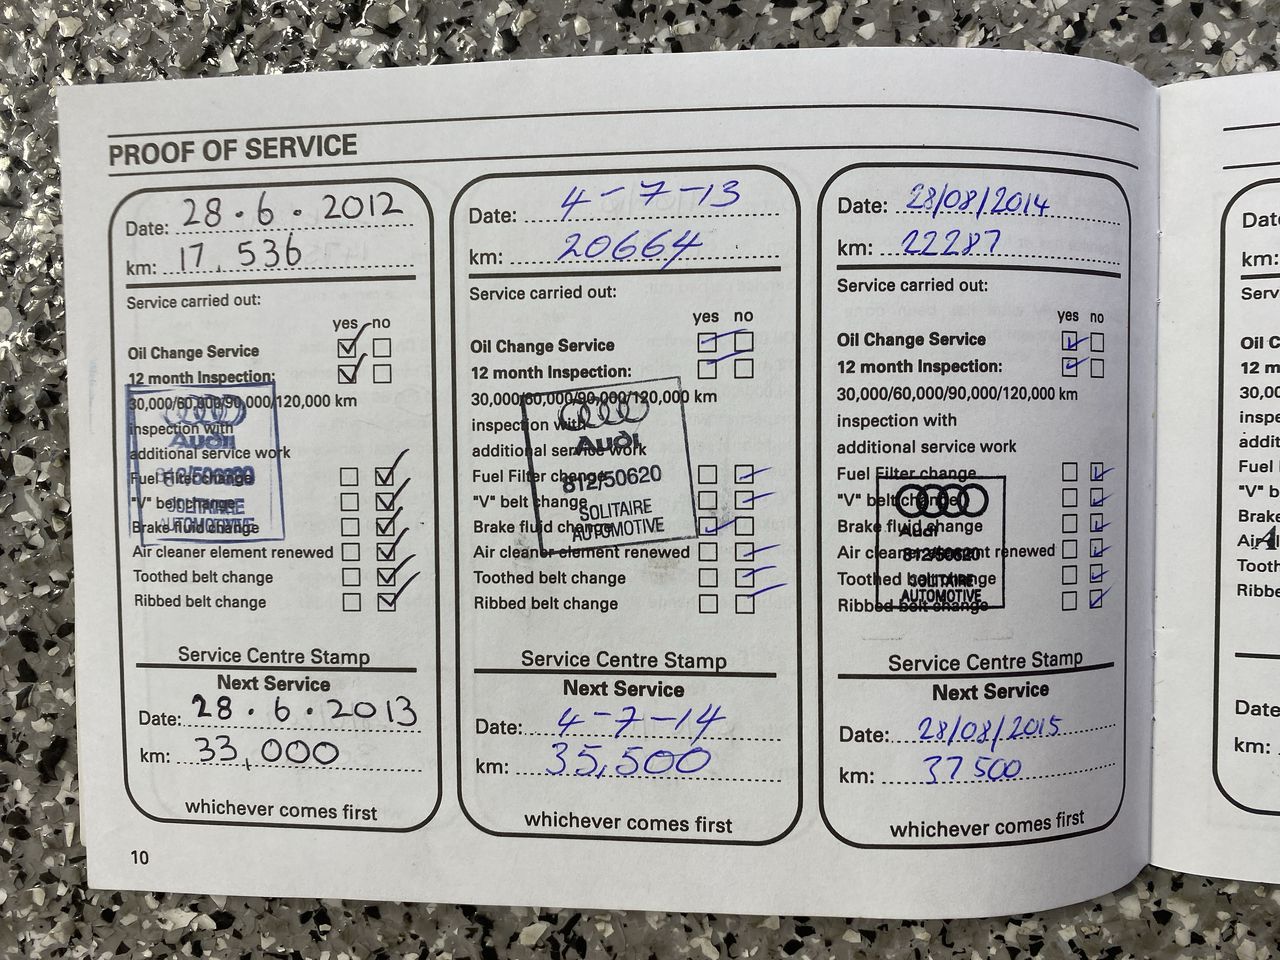 PROOF OF SERVICE
Date: 28.6.2012
km: 17,536
Service carried out:
yes no
Oil Change Service
12 month Inspection:
30,000/60,000/90,000/120,000 km
inspection with
additional service work
Fuel Filter change
"V" belt change
Brake fluid change
Air cleaner element renewed
Toothed belt change
Ribbed belt change
Audi
SOLITAIRE
AUTOMOTIVE
Service Centre Stamp
Next Service
Date: 28.6.2013
km: 33,000
whichever comes first
10
Date: 4-7-13
km: 20664
Service carried out:
yes no
Oil Change Service
12 month Inspection:
30,000/60,000/90,000/120,000 km
inspection with
additional service work
Fuel Filter change
"V" belt change
Brake fluid change
Air cleaner element renewed
Toothed belt change
Ribbed belt change
Audi
812/50620
SOLITAIRE
AUTOMOTIVE
Service Centre Stamp
Next Service
Date: 4-7-14
km: 35,500
whichever comes first
Date: 28/08/2014
km: 22287
Service carried out:
yes no
Oil Change Service
12 month Inspection:
30,000/60,000/90,000/120,000 km
inspection with
additional service work
Fuel Filter change
"V" belt change
Brake fluid change
Air cleaner element renewed
Toothed belt change
Ribbed belt change
Audi
812/50620
SOLITAIRE
AUTOMOTIVE
Service Centre Stamp
Next Service
Date: 28/08/2015
km: 37500
whichever comes first
Date
km:
Serv
Oil C
12 m
30,00
inspe
addit
Fuel
"V" b
Brake
Tooth
Ribbe
Date
km: